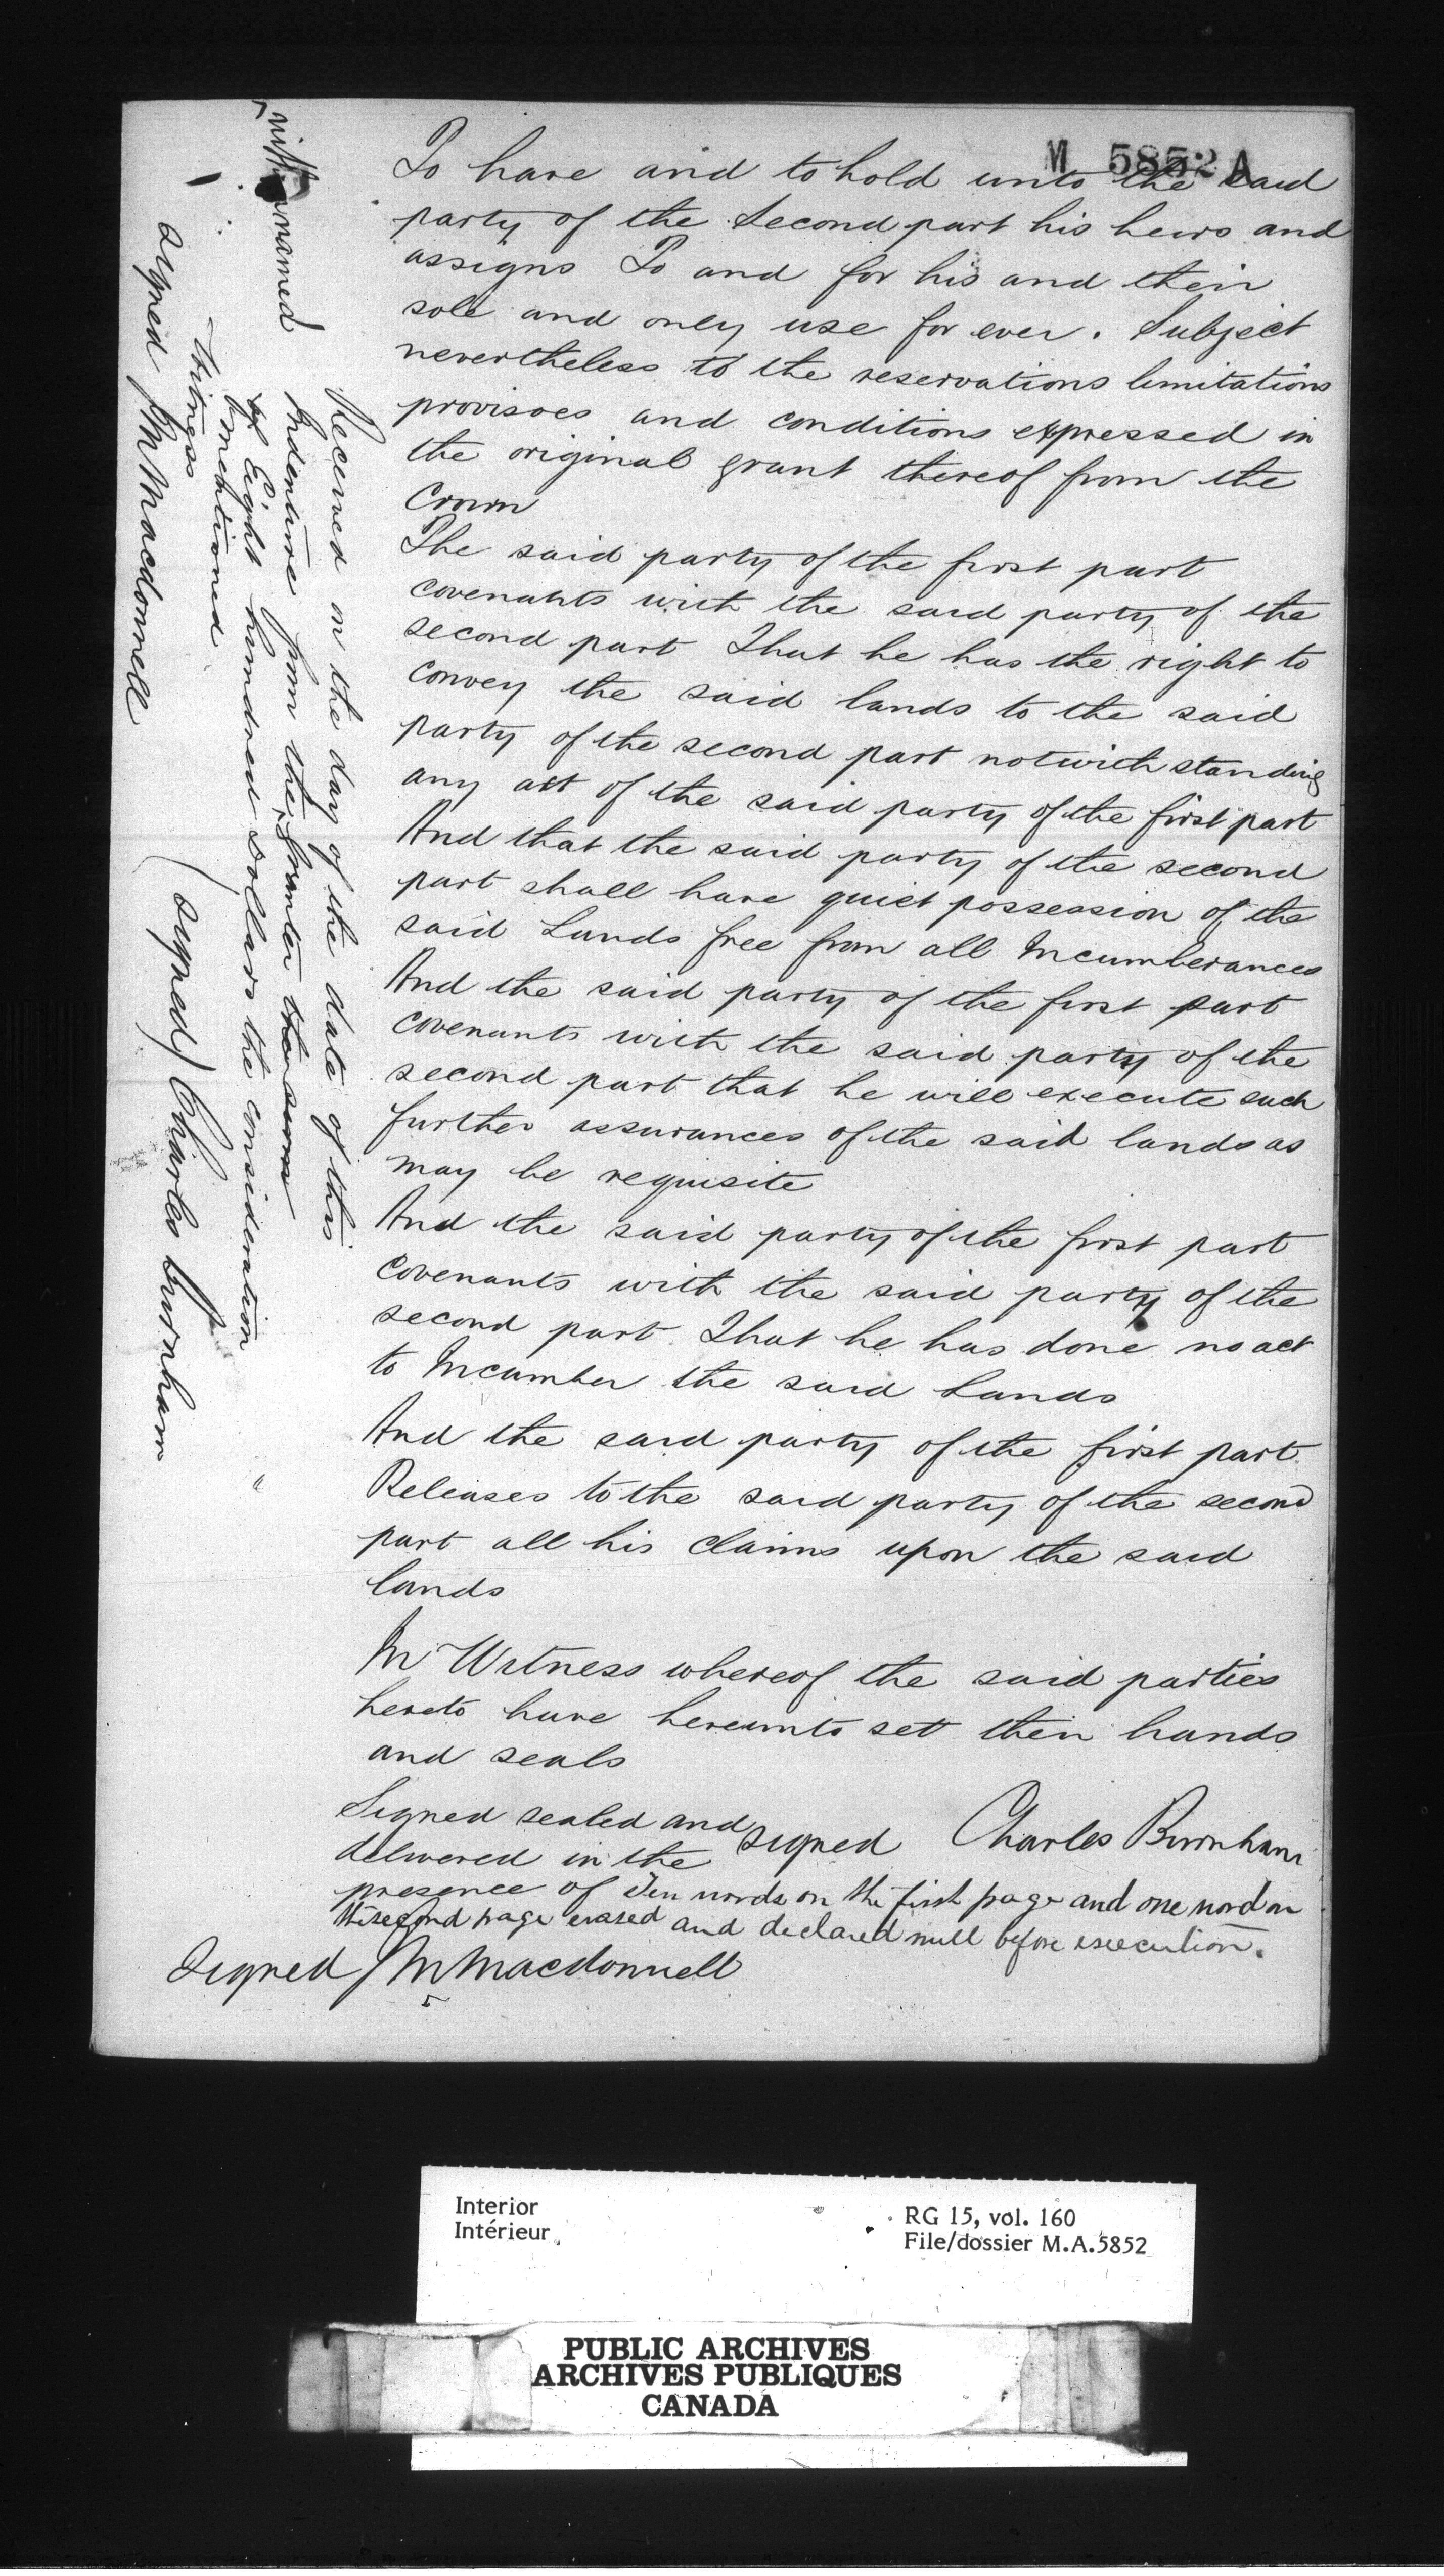 M 5852 A
To have and to hold unto the said
party of the Second part his heirs and
assigns To and for his and their
sole and only use for ever. Subject
nevertheless to the reservations limitations
provisoes and conditions expressed in
the original grant thereof from the
Crown
The said party of the first part
covenants with the said party of the
second part That he has the right to
convey the said lands to the said
party of the second part notwithstanding
any act of the said party of the first part
And that the said party of the second
part shall have quiet possession of the
said Lands free from all Incumberances
And the said party of the first part
covenants with the said party of the
second part that he will execute such
further assurances of the said lands as
may be requisite
And the said party of the first part
covenants with the said party of the
second part That he has done no act
to Incumber the said Lands
And the said party of the first part
Releases to the said party of the second
part all his claims upon the said
lands
In Witness whereof the said parties
hereto have hereunto set their hands
and seals
Signed sealed and
delivered in the signed Charles Burnham
presence of Ten words on the first page and one word on
this second page erased and declared null before execution.
Signed J M Macdonnell
Received on the day of the date of this
Indenture from the grantee the sum
within named
of Eight hundred dollars the consideration
mentioned
Witness
signed J M Macdonnell
(signed) Charles Burnham
Interior
Intérieur
RG 15, vol. 160
File/dossier M.A.5852
PUBLIC ARCHIVES
ARCHIVES PUBLIQUES
CANADA